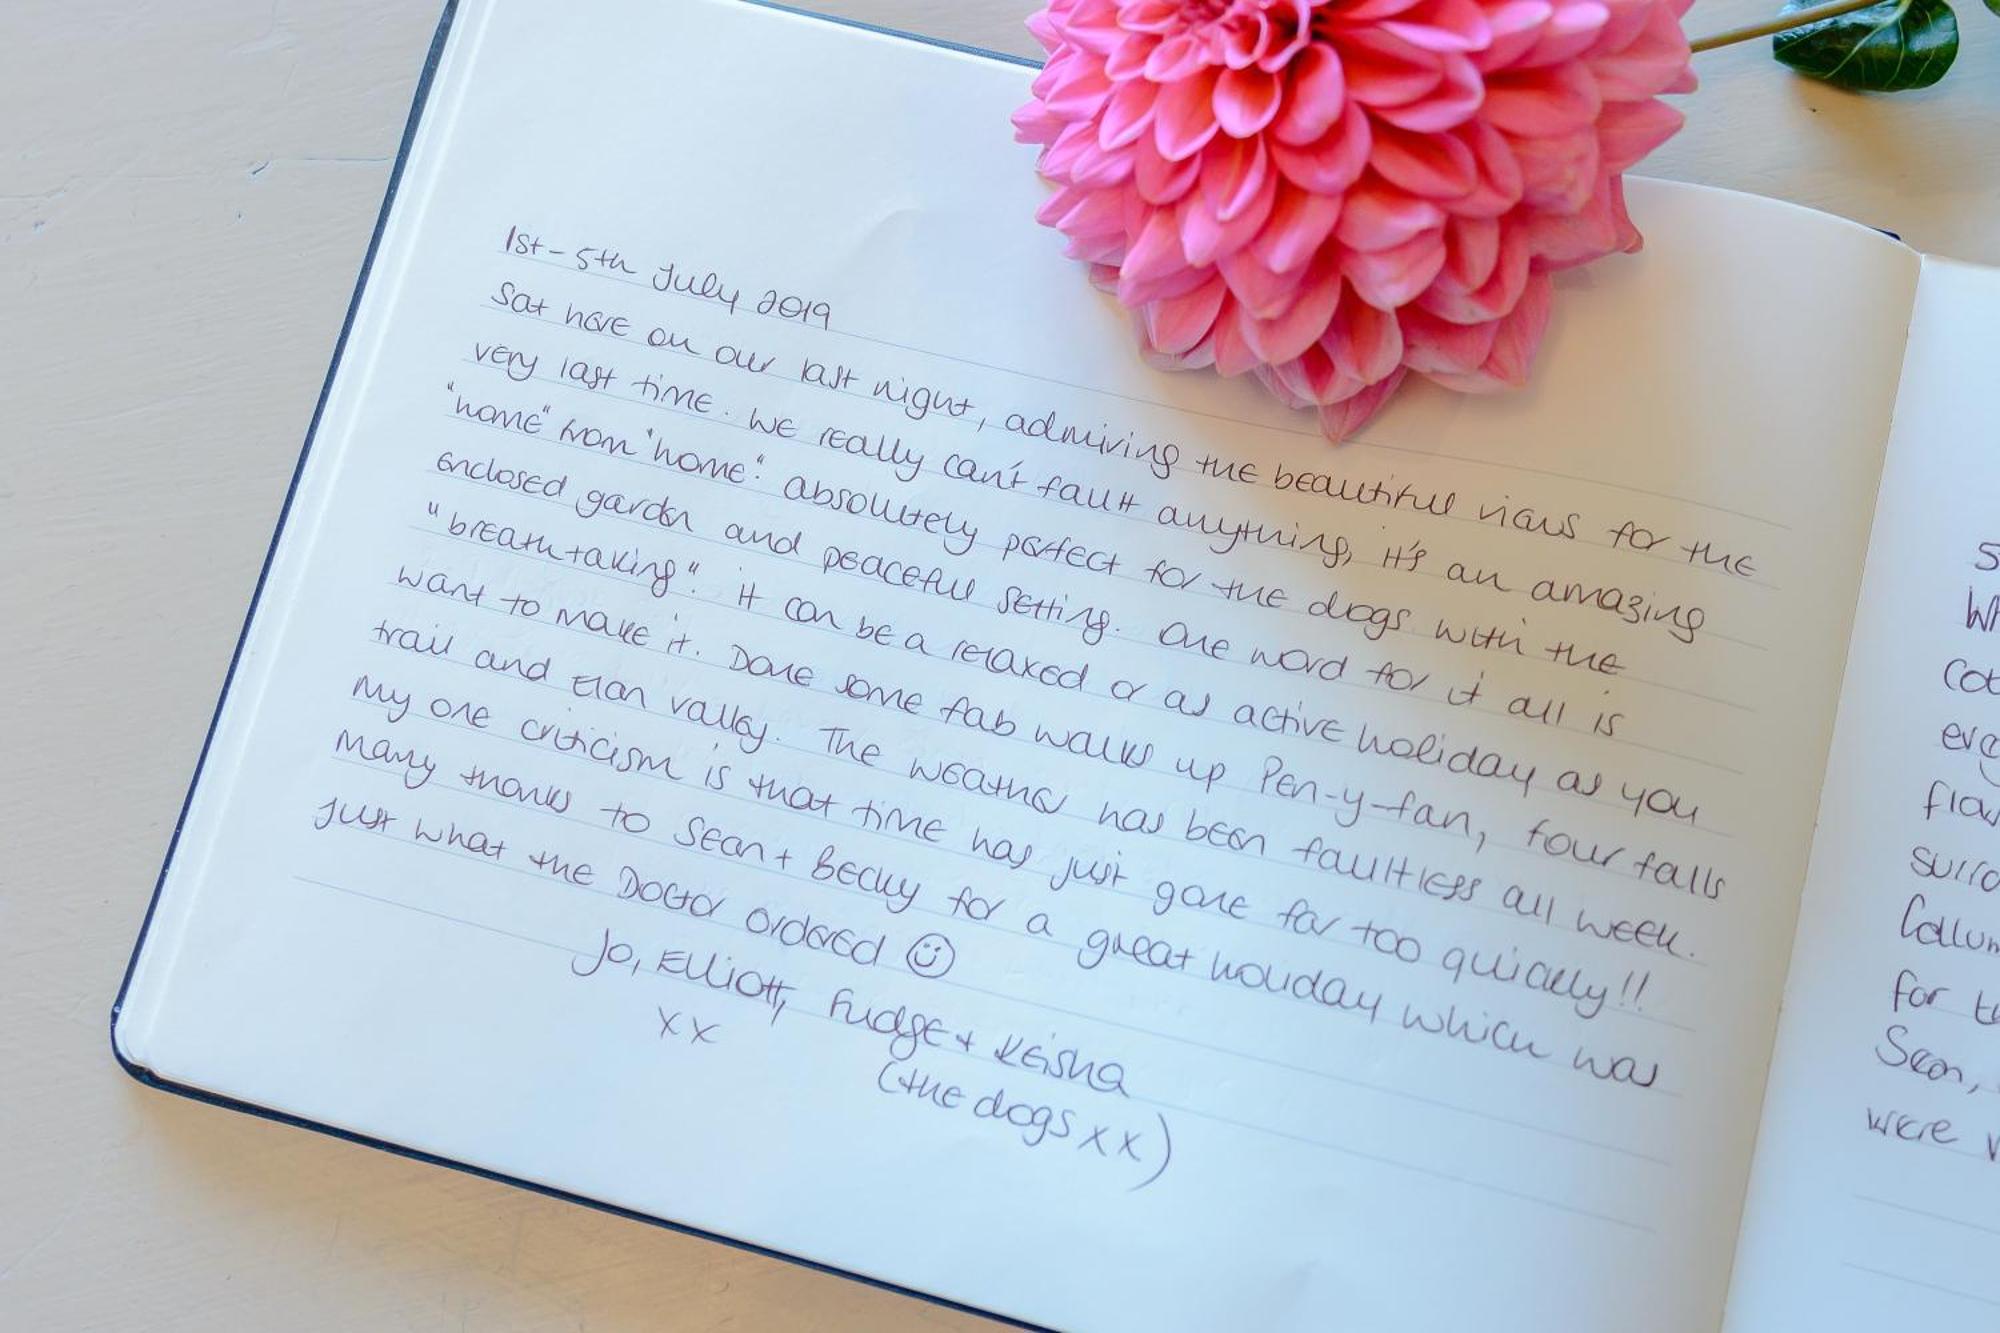 1st - 5th July 2019
Sat here on our last night, admiring the beautiful views for the
very last time. We really can't fault anything, it's an amazing
"home" from "home". absolutely perfect for the dogs with the
enclosed garden and peaceful setting. One word for it all is
"breathtaking". it can be a relaxed or as active holiday as you
want to make it. Done some fab walks up Pen-y-fan, four falls
trail and Elan valley. The weather has been faultless all week.
My one criticism is that time has just gone far too quickly!!
Many thanks to Sean + Becky for a great holiday which was
just what the Doctor ordered ☺
Jo, Elliott, Fudge + Keisha
xx
(the dogs xx)
Sean,
for
were